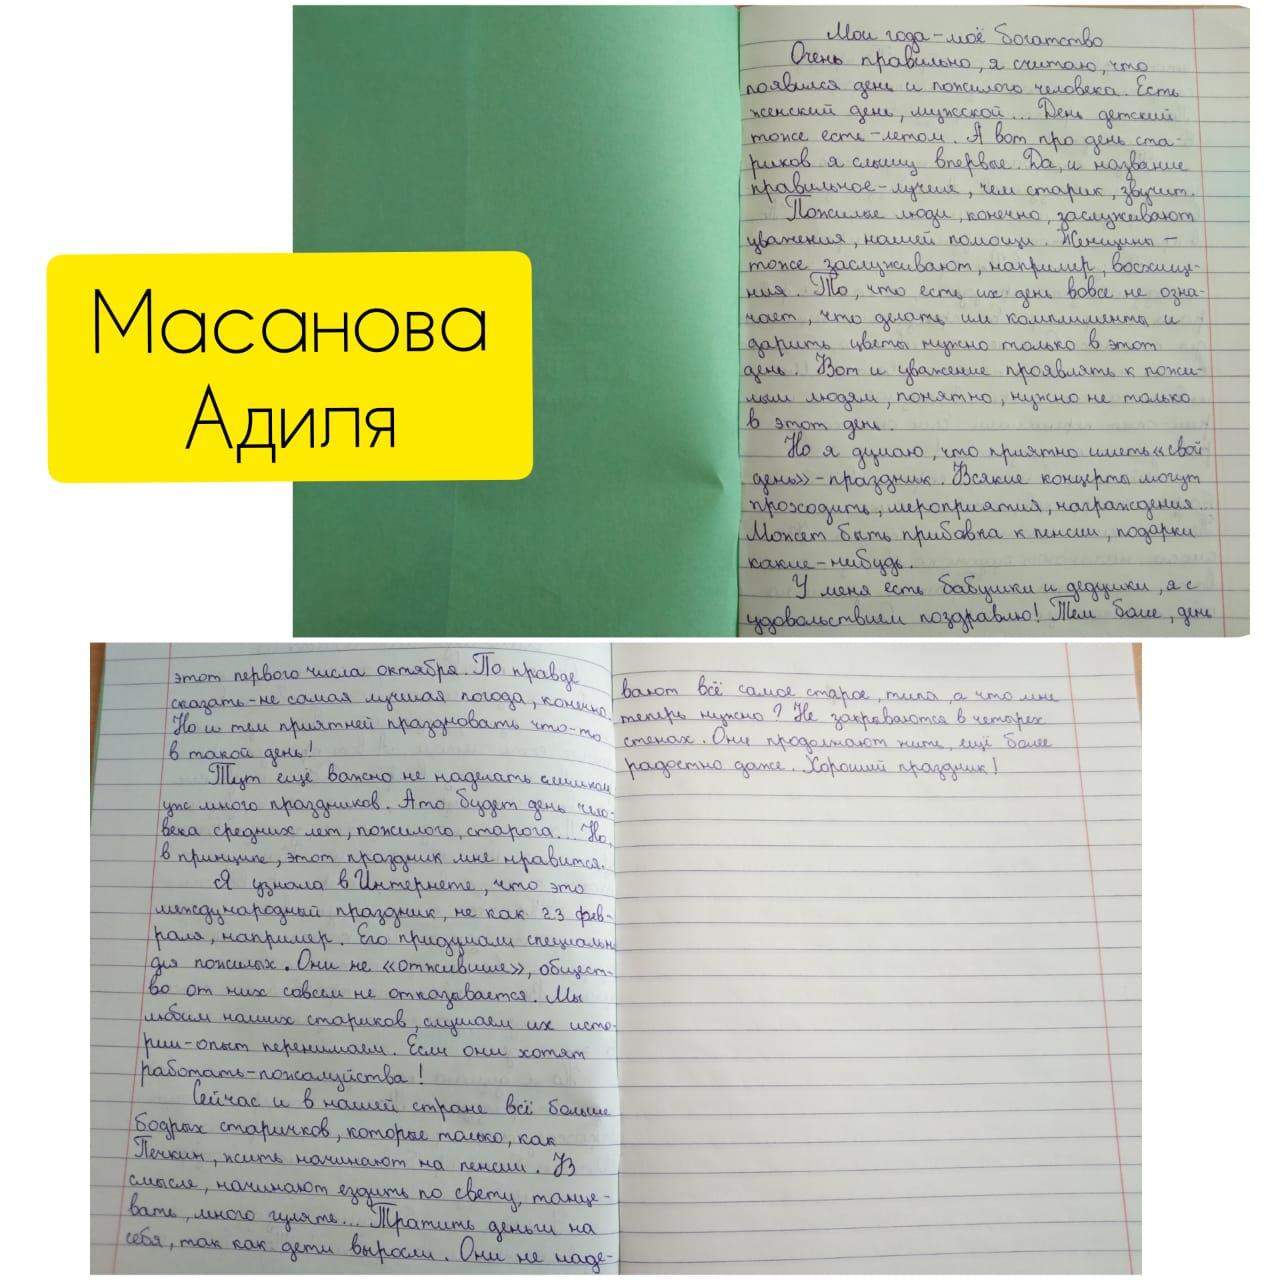 Масанова
Адиля
Мои года-моё богатство
Очень правильно, я считаю, что
появился день и пожилого человека. Есть
женский день, мужской... День детский
тоже есть-летом. А вот про день ста-
риков я слышу впервые. Да, и название
правильное-лучше, чем старик, звучит.
Пожилые люди, конечно, заслуживают
уважения, нашей помощи. Женщины -
тоже заслуживают, например, восхище-
ния. То, что есть их день вовсе не озна-
чает, что делать им комплименты и
дарить цветы нужно только в этот
день. Вот и уважение проявлять к пожи-
лым людям, понятно, нужно не только
в этот день.
Но я думаю, что приятно иметь «свой
день»-праздник. Всякие концерты могут
проходить, мероприятия, награждения...
Может быть прибавка к пенсии, подарки
какие-нибудь.
У меня есть бабушки и дедушки, я с
удовольствием поздравлю! Тем более, день
этот первого числа октября. По правде
сказать-не самая лучшая погода, конечно.
Но и тем приятней праздновать что-то
в такой день!
Тут ещё важно не наделать слишком
уж много праздников. А то будет день чело-
века средних лет, пожилого, старого... Но,
в принципе, этот праздник мне нравится.
Я узнала в Интернете, что это
международный праздник, не как 23 фев-
раля, например. Его придумали специальн
для пожилых. Они не «отжившие», общест-
во от них совсем не отказывается. Мы
любим наших стариков, слушаем их исто-
рии-опыт перенимаем. Если они хотят
работать-пожалуйства!
Сейчас и в нашей стране всё больше
бодрых старичков, которые только, как
Печкин, жить начинают на пенсии. В
смысле, начинают ездить по свету, танце-
вать, много гулять... Тратить деньги на
себя, так как дети выросли. Они не наде-
вают всё самое старое, типа, а что мне
теперь нужно? Не закрываются в четырех
стенах. Они продолжают жить, ещё более
радостно даже. Хороший праздник!